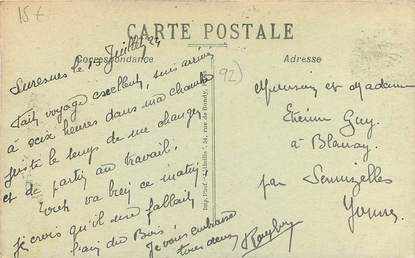 15 €
CARTE POSTALE
Correspondance
Adresse
Suresnes le 15 Juillet 24
Fait voyage excellent, suis arrivé
à seize heures dans ma chambre
juste le temps de me changer
et de partir au travail.
va bien ce matin
je crois qu'il me fallait
l'air du Bois
Je vous embrasse
tous deux
(92)
Monsieur et Madame
Etienne Guy
à Blannay
par Sermizelles
Yonne